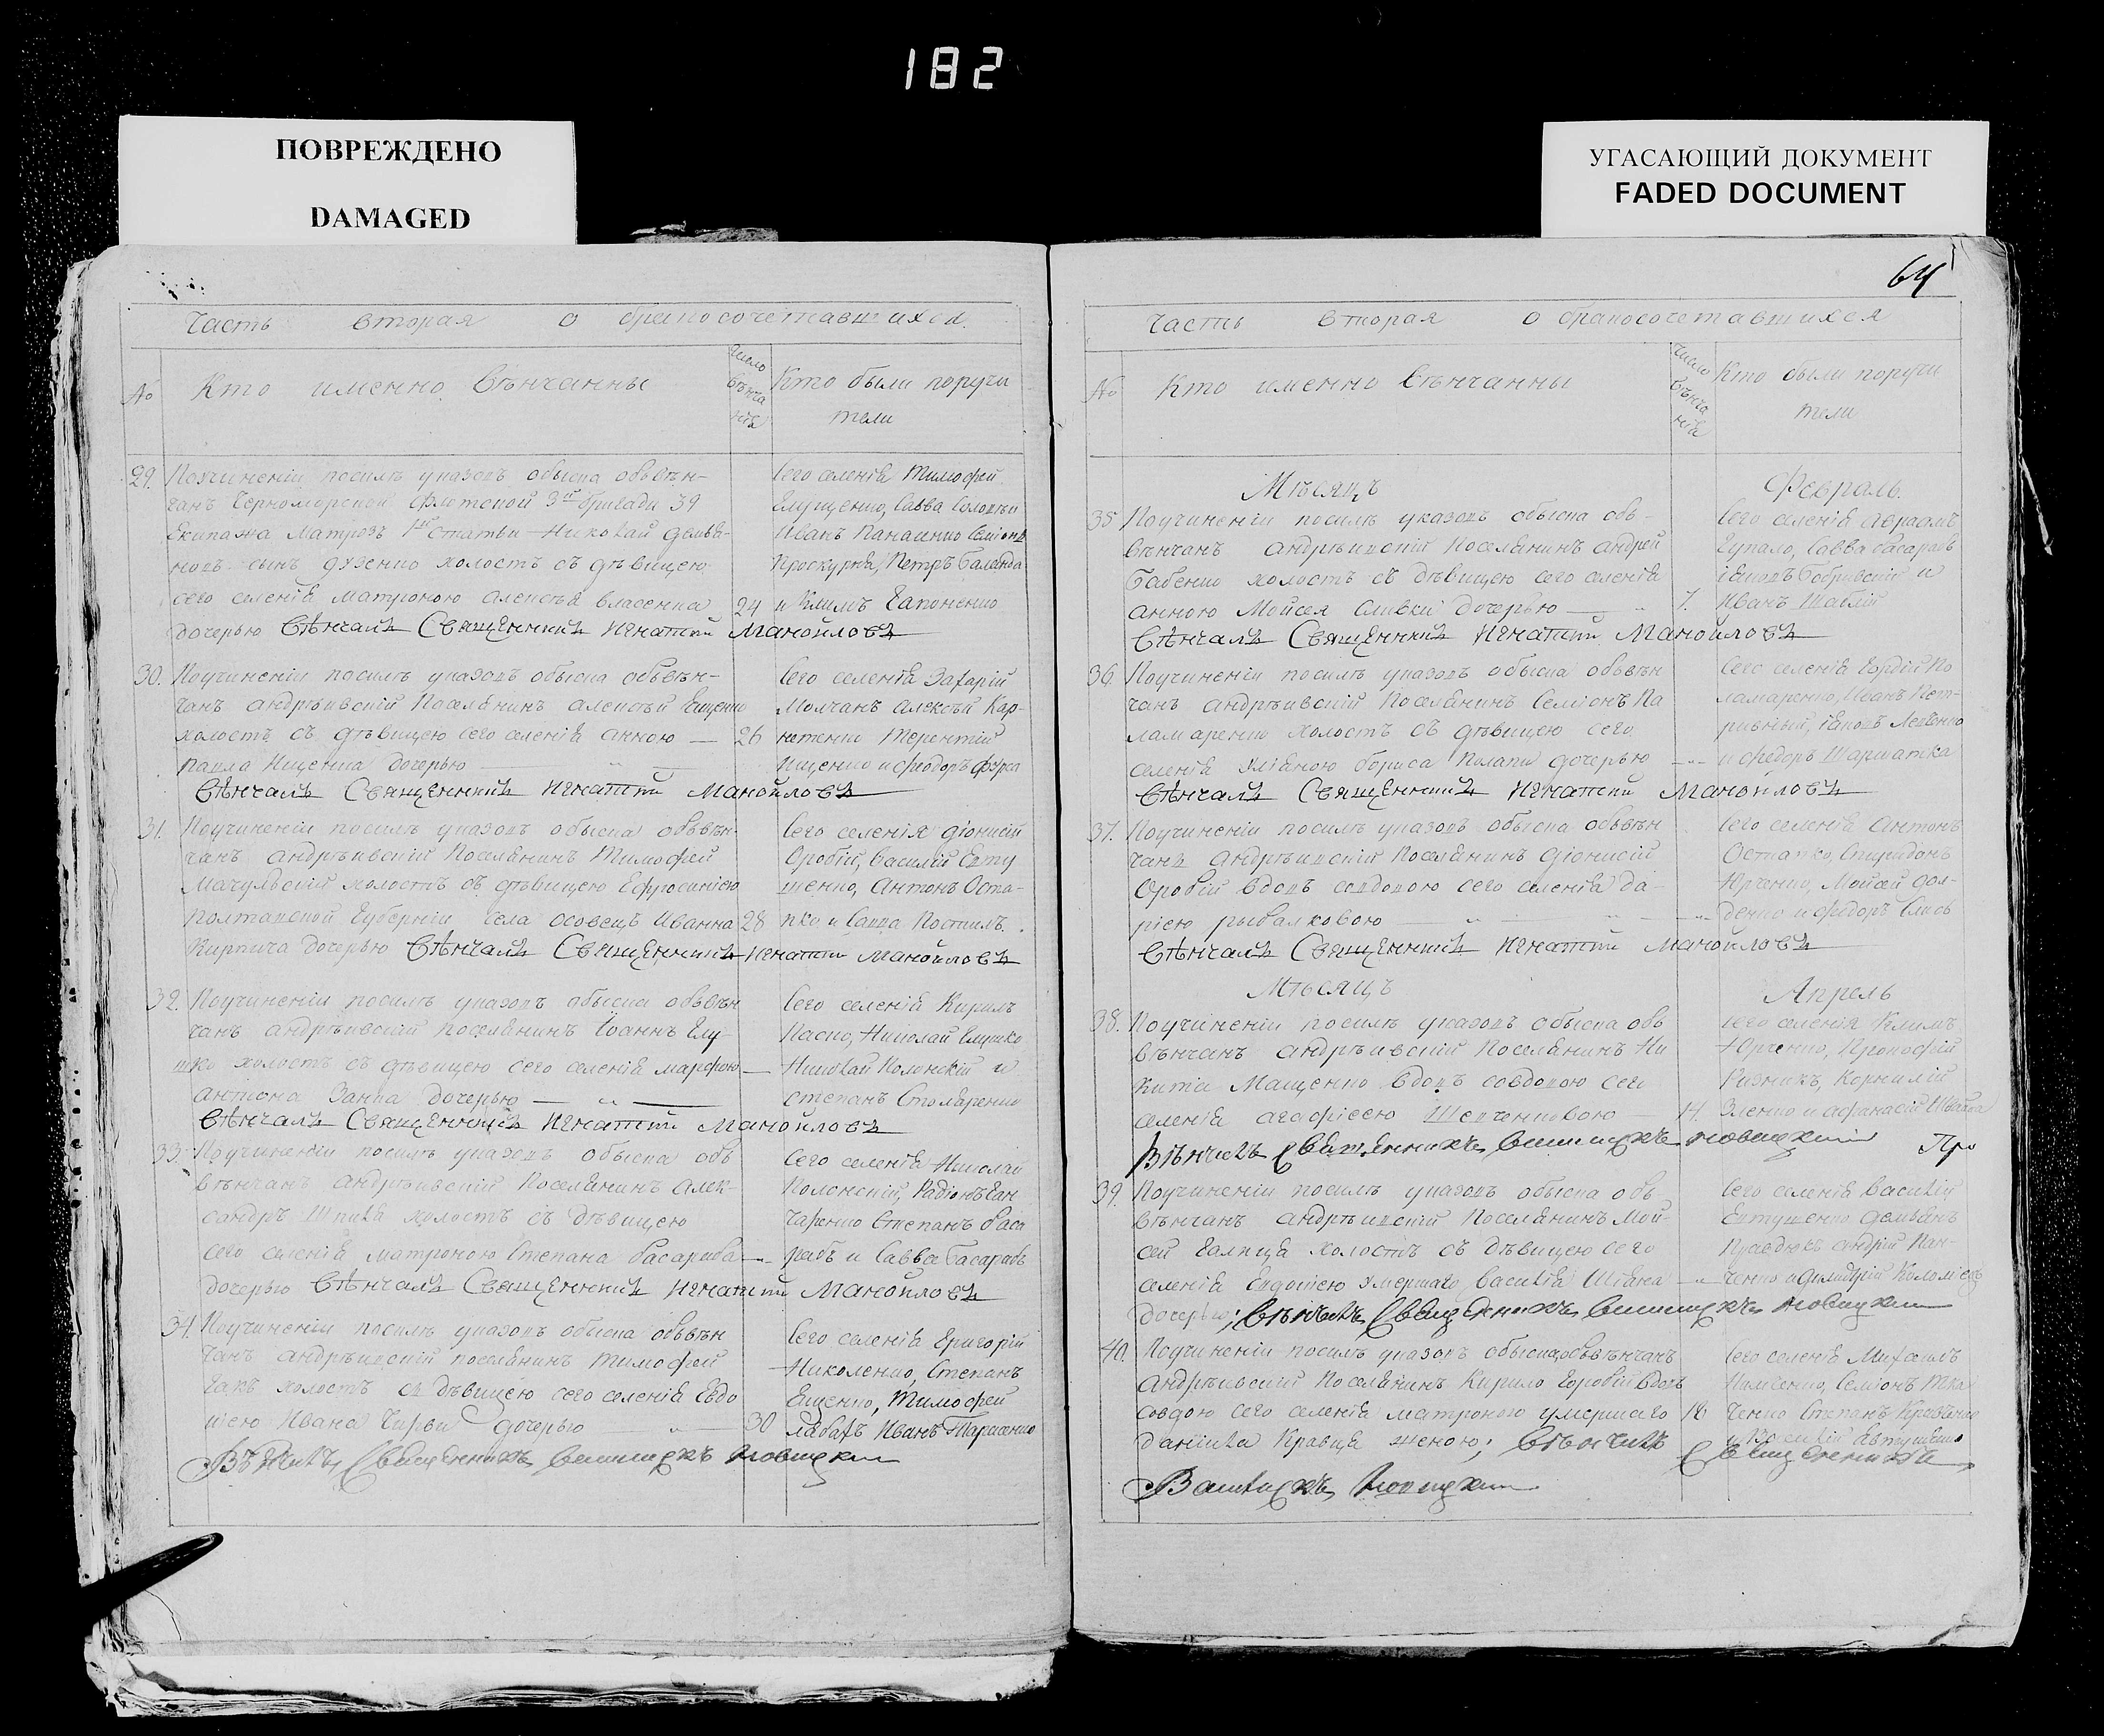 182
ПОВРЕЖДЕНО
DAMAGED
УГАСАЮЩИЙ ДОКУМЕНТ
FADED DOCUMENT
Часть вторая о бракосочетавшихся.
№ Кто именно Вѣнчанны
число вѣнчанія
Кто были поручи
тели
29. Поучиненіи посилѣ указовъ обыска обвѣн-
чанъ Черноморской Флотской 3й бригади 39
Екипажа Матрозъ 1й статьи Николай
сынъ холостъ съ дѣвицею
сего селенія Матроною Алексѣя Власенка 24
дочерью Вѣнчалъ Священникъ Игнатій Манойловъ
Сего селенія Тимофей
Глущенко, Савва
Иванъ Панасенко Семіонъ
Проскурня, Петръ Баланда
и Климъ Гапоненко
30. Поучиненіи посилѣ указовъ обыска обвѣн-
чанъ андрѣивскій Поселянинъ Алексѣй Ищенко
холостъ съ дѣвицею сего селенія Анною — 26
Павла Ищенка дочерью
Вѣнчалъ Священникъ Игнатій Манойловъ
Сего селенія Захарій
Молчанъ Алексѣй Кар-
Терентій
Ищенко и Феодоръ Фурса
31. Поучиненіи посилѣ указовъ обыска обвѣн-
чанъ андрѣивскій Поселянинъ Тимофей
Мачульскій холостъ съ дѣвицею Ефросиніею
Полтавской Губерніи села Осовецъ Иванна 28
Кирпича дочерью Вѣнчалъ Священникъ Игнатій Манойловъ
Сего селенія Діонисій
Оробій, Василій Евту
шенко, Антонъ Оста-
пко и Савва Постилъ.
32. Поучиненіи посилѣ указовъ обыска обвѣн
чанъ андрѣивскій поселянинъ Іоаннъ Глу-
шко холостъ съ дѣвицею сего селенія Марфою —
Антона Заики дочерью —
Вѣнчалъ Священникъ Игнатій Манойловъ
Сего селенія Кирилъ
Паско, Николай Глушко
Николай Полонскій и
Степанъ Столяренко
33. Поучиненіи посилѣ указовъ обыска объ
вѣнчанъ андрѣивскій Поселянинъ Алек-
сандръ Шпига холостъ съ дѣвицею
сего селенія Матроною Степана Басараба
дочерью Вѣнчалъ Священникъ Игнатій Манойловъ
Сего селенія Николай
Полонскій, Радіонъ Ган
чаренко Степанъ Баса
рабъ и Савва Басарабъ
34. Поучиненіи посилѣ указовъ обыска обвѣн
чанъ андрѣивскій поселянинъ Тимофей
холостъ съ дѣвицею сего селенія Евдо
кіею Ивана дочерью 30
Вѣнчалъ Священникъ Василій Новицкій
Сего селенія Григорій
Николенко, Степанъ
Ещенко, Тимофей
Иванъ Тарасенко
64
Часть вторая о бракосочетавшихся
№ Кто именно Вѣнчанны
число вѣнчанія
Кто были поручи
тели
Мѣсяцъ Февраль.
35 Поучиненіи посилѣ указовъ обыска объ-
вѣнчанъ андрѣивскій Поселянинъ Андрей
Бабенко холостъ съ дѣвицею сего селенія
Анною Мойсея Сливки дочерью — 7.
Вѣнчалъ Священникъ Игнатій Манойловъ
Сего селенія Авраамъ
Гупало, Савва Басарабъ
Іаковъ и
Иванъ Шаблій
36. Поучиненіи посилѣ указовъ обыска обвѣн
чанъ андрѣивскій Поселянинъ Семіонъ Па
ламаренко холостъ съ дѣвицею сего
селенія Уліяною Бориса дочерью
Вѣнчалъ Священникъ Игнатій Манойловъ
Сего селенія Гордій По
ламаренко, Иванъ Пет-
Іаковъ
и Федоръ Шарматка
37. Поучиненіи посилѣ указовъ обыска обвѣн
чанъ андрѣивскій Поселянинъ Діонисій
Оробій вдовъ совдовою сего селенія Да-
ріею Рыбалковою
Вѣнчалъ Священникъ Игнатій Манойловъ
Сего селенія Антонъ
Остапко, Спиридонъ
Юрченко, Мойсей Дол-
денко и Федоръ
Мѣсяцъ Апрель
38. Поучиненіи посилѣ указовъ обыска объ
вѣнчанъ андрѣивскій Поселянинъ Ни
кита Мащенко вдовъ совдовою сего
селенія Агафіею Шевченковою 14.
Вѣнчалъ Священникъ Василій Новицкій
Сего селенія Климъ
Юрченко, Прокофій
Ризникъ, Корнилій
Зленко и Афанасій
Про
39. Поучиненіи посилѣ указовъ обыска объ
вѣнчанъ андрѣивскій Поселянинъ Мой-
сей Галица холостъ съ дѣвицею сего
селенія Евдокіею умершаго Василія
дочерью; Вѣнчалъ Священникъ Василій Новицкій
Сего селенія Василій
Евтушенко Демьянъ
Андрій Пан-
ченко и Димитрій Коломіецъ
40. Поучиненіи посилѣ указовъ обыска обвѣнчанъ
Андрѣивскій Поселянинъ Кирило вдовъ
совдою сего селенія Матроною умершаго 18
Даніила Кравца женою; Вѣнчалъ Священникъ
Василій Новицкій
Сего селенія Михаилъ
Семіонъ Тка
ченко Степанъ Кравченко
и Василій Автушенко